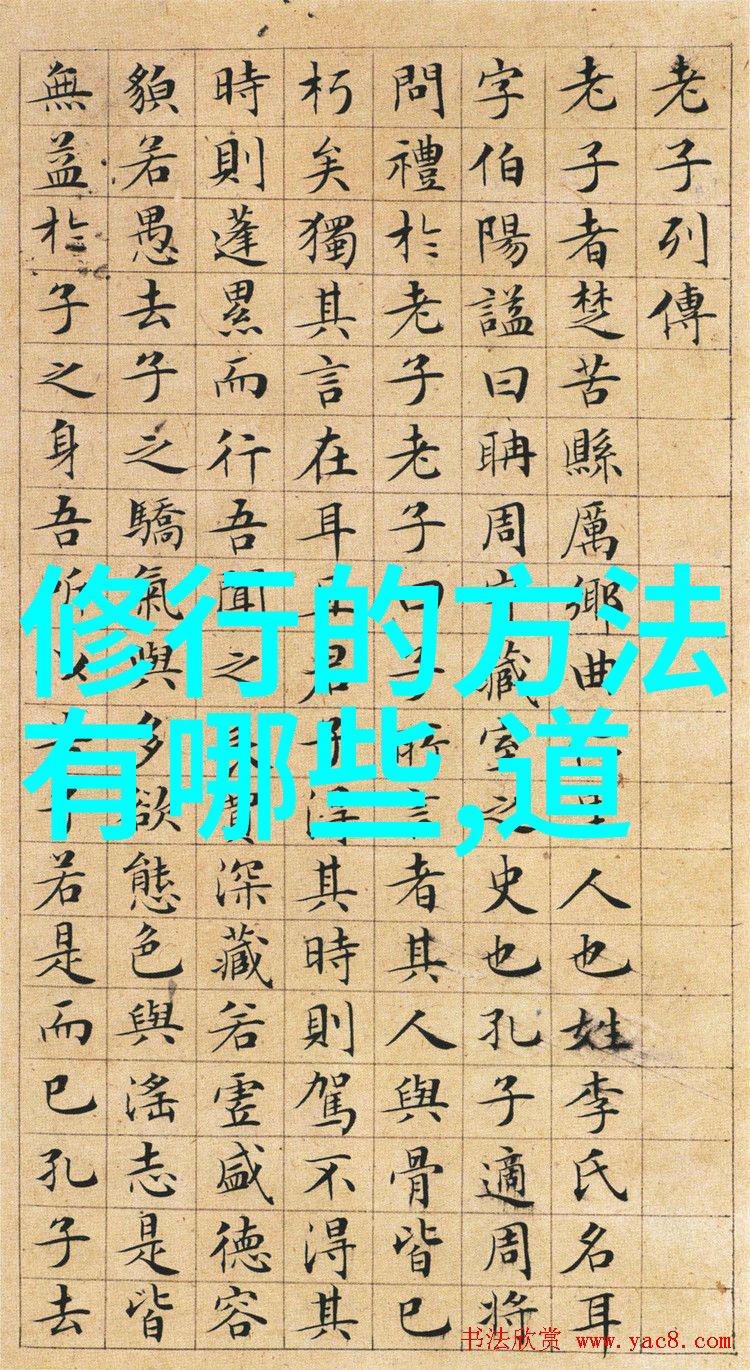 老子列傳
老子者楚苦縣厲鄉曲人也姓李氏名耳
字伯陽謚曰聃周守藏室之史也孔子適周將
問禮於老子老子曰子所言者其人與骨皆已
朽矣獨其言在耳且君子得其時則駕不得其
時則蓬累而行吾聞之良賈深藏若虛盛德容
貌若愚去子之驕氣與多欲態色與淫志是皆
無益於子之身吾所以告子若是而已孔子去
修行的方法
有哪些,道
书法欣赏 www.yac8.com